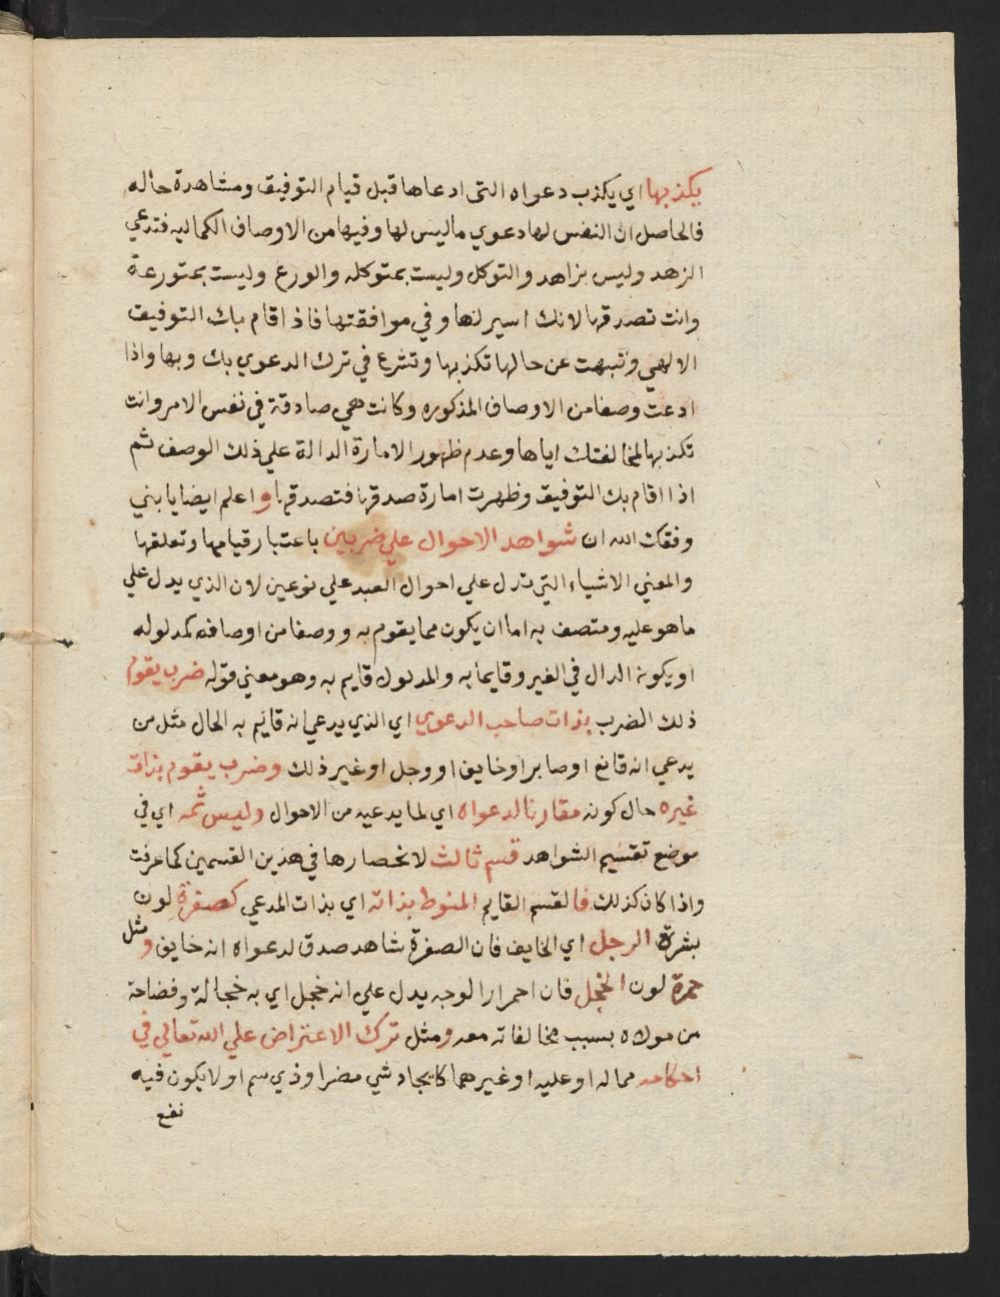 يكذبها اي يكذب دعواه التى ادعاها قبل قيام التوفيق ومشاهدة حاله
فالحاصل ان النفس لها دعوي ما ليس لها وفيها من الاوصاف الكماليه فتدعي
الزهد وليس بزاهد والتوكل وليست بمتوكله والورع وليست بمتورعة
وانت تصدقها لانك اسير لها وفي موافقتها فاذا قام بك التوفيق
الالهي وتنبهت عن حالها تكذبها وتشرع في ترك الدعوي بك وبها واذا
ادعت وصفا من الاوصاف المذكوره وكانت هي صادقة في نفس الامر وانت
تكذبها لمخالفتك اياها وعدم ظهور الامارة الدالة علي ذلك الوصف ثم
اذا اقام بك التوفيق وظهرت امارة صدقها فتصدقها واعلم ايضا يا بني
وفقك الله ان شواهد الاحوال علي ضربين باعتبار قيامها وتعلقها
والمعني الاشياء التي تدل علي احوال العبد علي نوعين لان الذي يدل علي
ما هو عليه ومتصف به اما ان يكون مما يقوم به ووصفا من اوصافه كمدلوله
او يكون الدال في الغير وقايما به والمدلول قايم به وهو معني قوله ضرب يقوم
ذلك الضرب بذات صاحب الدعوي اي الذي يدعي انه قائم به الحال مثل من
يدعي انه قانع او صابر او خايف او وجل او غير ذلك وضرب يقوم بذات
غيره حال كونه مقارنا لدعواه اي لما يدعيه من الاحوال وليس ثمه اي في
موضع تقسيم الشواهد قسم ثالث لانحصارها في هذين القسمين كما عرفت
واذا كان كذلك فالقسم القايم المنوط بذاته اي بذات المدعي كصفرة لون
بشرة الرجل اي الخايف فان الصفرة شاهد صدق لدعواه انه خايف ومثل
حمرة لون الخجل فان احمرار الوجه يدل علي انه خجل اي به خجالة وفضاحة
من مولاه بسبب مخالفاته معه ومثل ترك الاعتراض علي الله تعالي في
احكامه مما له او عليه او غيرهما كايجاد شي مضر او ذي سم او لا يكون فيه
نفع